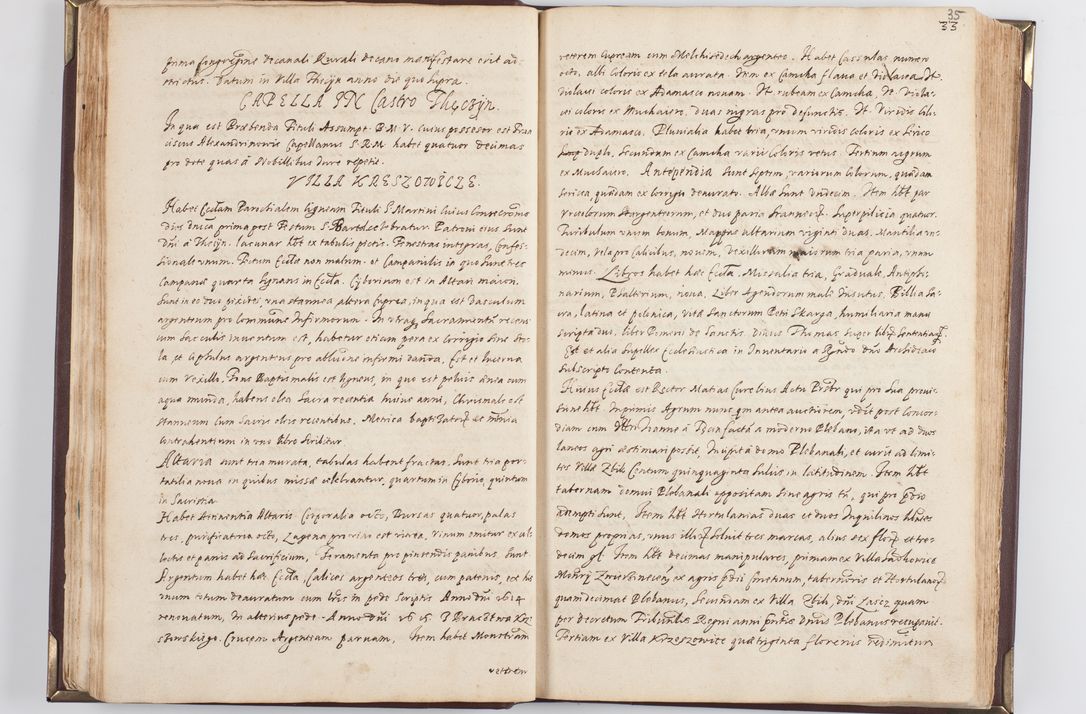 prima congregõne decanali Rurali decano manifestare erit ad-
strictus. Datum in Villa Thęczÿn anno die quo supra.
CAPELLA IN Castro Thęczÿn.
In qua est Præbenda Tituli Assumpt. B. M. V. cuius possesor est Fran
ciscus Alexandrinowic Capellanus S. R. M. habet quatuor decimas
pro dote quas à Nobilibus Iure repetit.
VILLA KRESZOWICZE.
Habet Ecclam Parochialem ligneam Tituli S. Martini cuius Consecrõnis
dies dnica prima post Festum S. Barthol celebratur Patroni eius sunt
Dñi à Thęczÿn. lacunar hẽt ex tabulis pictis. Fenestras integras, Confes-
sionale unum. Tectum Ecclæ non malum. et Campanilis in quo sunt tres
Campanæ quarta signans in Eccla. Ciborium est in Altari maiori.
sunt in eo duo pixides, una stannea altera cuprea, in qua est Vasculum
argenteum pro communi Infirmorum. In utraq; Sacramentũ recens
cum sacculis inventum est, habetur etiam pera ex corrigio sine sto-
la, et Ciphulus argenteus pro ablutione infirmi danda, Est et lucerna
cum Vexillo. Fons Baptismalis est ligneus, in quo est peluis ænea cum
aqua munda, habens olea sacra recentia huius anni, Chrismale est
stanneum cum sacris oleis recentibus. Metrica baptisatorum et nomia
contrahentium in uno libro scribitur.
Altaria sunt tria murata, tabulas habent fractas. sunt tria por-
tatilia nova in quibus missæ celebrantur, quartum in Cyborio, quintum
in Sacristia.
Habet Attinentia Altaris Corporalia octo, Bursas quatuor, palas
tres, purificatoria octo, Lagena pro vino est vitrea, Vinum emitur ex col-
lectis et panis ad Sacrificium, Feramento pro pinsendis panibus. sunt
Argentum habet hæc Eccla, Calices argenteos tres, cum patenis, ex his
unum totum deauratum cum lris in pede scriptis Anno dñi 1614
renovatum, In alterius pede Anno dñi 1615 P. Pracittwa Krz
Crucem Argenteam parvam, Item habet Monstram
veterem
35
33
veterem cupream cum Melchisedech argenteo. Habet Cassulas numero
octo, albi coloris ex tela aurata. Item ex Camcha flava et violacea It.
violacei coloris ex Adamasco novam. It. rubeam ex Camcha, It. Viola-
cei coloris ex Muchaiero, duas nigras pro defunctis. It. Viridis colo-
ris ex Adamasco. Pluvialia habet tria, unum viridis coloris ex serico
duplo, secundum ex Camcha varii Coloris vetus. Tertium nigrum
ex Muclaiero. Antependia sunt septem, variorum colorum, quædam
sericea, quædam ex corrigio deaurato. Albæ sunt undecim. Item hẽt par
Urceolorum Argenteorum, et duo paria stanneorũ. Superpilicia quatuor.
Turibulum unum bonum, Mappas altarium viginti duas. Mantilia un-
decim, vela pro Calicibus, novem, Vexillorum maiorum tria paria, unum
minus. Libros habet hæc Eccla. Missalia tria, Graduale, Antipho-
narium, Psalterium, nova, Liber Agendorum mali Insutus, Biblia Sa-
cra, latina et polonica, Vitæ Sanctorum Petri Skarga, humiliaria manu
scripta duo, liber Pomerii de Sanctis. Divus Thomas super libr. Sententiar.
Est et alia supellex Ecclesiastica in Inventario a Rgndo dno Archidiac
subscripto contenta.
Huius Ecclæ est Rector Matias Curelius Actu Prsbr qui pro sua provi-
sione hẽt. Imprimis Agrum nunc qm antea auctiorem, vdlt post Concor-
diam cum Ioanne à Tęczin facta à moderno Plebano, ita ut ad duos
laneos agri æstimari possit, Incipit à domo Plebanali, et currit ad limi-
tes Villæ Zbik Centum quinquaginta sulcis in latitudinem. Item hẽt
tabernam domui Plebanali oppositam sine agris tñ, qui pro prdio
adempti sunt, Item hẽt Hortulanias duas et duos Inquilinos hñtes
domos proprias, unus illorum soluit tres marcas, alius sex flor. et tre-
decim gl. Item hẽt decimas manipulares, primam ex Villa
ex agris prdii Cmetonum, tabernoris et Hortulanor.
quam decimat Plebanus, secundam ex Villa Zbik Dñi Łasicz quam
per decretum Tribunalis Regni anni prntis dnus Plebanus recuperavit.
Tertiam ex Villa Krzeszowice quæ triginta florenis redimitur